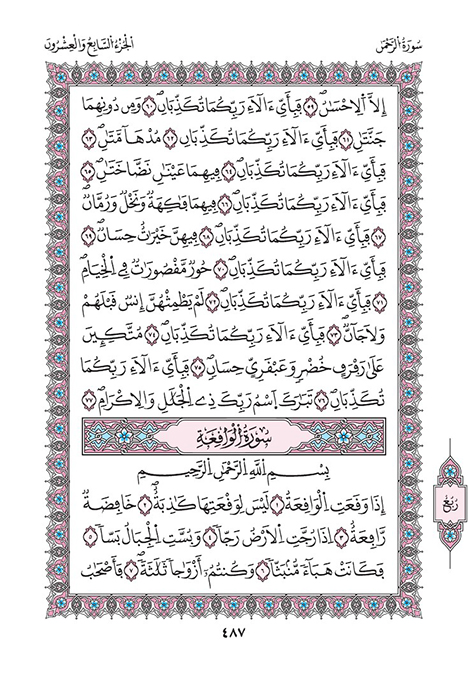 سُورَةُ الرَّحْمَٰن
الجُزءُ السَّابِعُ وَالْعِشْرُونَ
إِلَّا اَلِاحْسَٰنُ ٥٩ فَبِأَيِّ ءَالَآءِ رَبِّكُمَا تُكَذِّبَانِ ٦٠ وَمِن دُونِهِمَا
جَنَّتَٰنِ ٦١ فَبِأَيِّ ءَالَآءِ رَبِّكُمَا تُكَذِّبَانِ ٦٢ مُدْهَآمَّتَٰنِ ٦٣
فَبِأَيِّ ءَالَآءِ رَبِّكُمَا تُكَذِّبَانِ ٦٤ فِيهِمَا عَيْنَٰنِ نَضَّاخَتَٰنِ ٦٥
فَبِأَيِّ ءَالَآءِ رَبِّكُمَا تُكَذِّبَانِ ٦٦ فِيهِمَا فَٰكِهَةٌ وَنَخْلٌ وَرُمَّانٌ
٦٧ فَبِأَيِّ ءَالَآءِ رَبِّكُمَا تُكَذِّبَانِ ٦٨ فِيهِنَّ خَيْرَٰتٌ حِسَانٌ ٦٩
فَبِأَيِّ ءَالَآءِ رَبِّكُمَا تُكَذِّبَانِ ٧٠ حُورٌ مَّقْصُورَٰتٌ فِي اِلْخِيَامِ
٧١ فَبِأَيِّ ءَالَآءِ رَبِّكُمَا تُكَذِّبَانِ ٧٢ لَمْ يَطْمِثْهُنَّ إِنسٌ قَبْلَهُمْ
وَلَا جَآنٌّ ٧٣ فَبِأَيِّ ءَالَآءِ رَبِّكُمَا تُكَذِّبَانِ ٧٤ مُتَّكِـِٔينَ
عَلَىٰ رَفْرَفٍ خُضْرٍ وَعَبْقَرِيٍّ حِسَانٍ ٧٥ فَبِأَيِّ ءَالَآءِ رَبِّكُمَا
تُكَذِّبَانِ ٧٦ تَبَٰرَكَ اَسْمُ رَبِّكَ ذِے اِلْجَلَٰلِ وَالِاكْرَامِ ٧٧
سُورَةُ الْوَاقِعَةِ
بِسْمِ اللَّهِ الرَّحْمَٰنِ الرَّحِيمِ
إِذَا وَقَعَتِ اِلْوَاقِعَةُ ١ لَيْسَ لِوَقْعَتِهَا كَاذِبَةٌ ٢ خَافِضَةٌ
رَّافِعَةٌ ٣ اِذَا رُجَّتِ اِلَارْضُ رَجّاً ٤ وَبُسَّتِ اِلْجِبَالُ بَسّاً ٥
فَكَانَتْ هَبَآءً مُّنۢبَثّاً ٦ وَكُنتُمُۥٓ أَزْوَٰجاً ثَلَٰثَةً ٧ فَأَصْحَٰبُ
رُبُعُ
٤٨٧